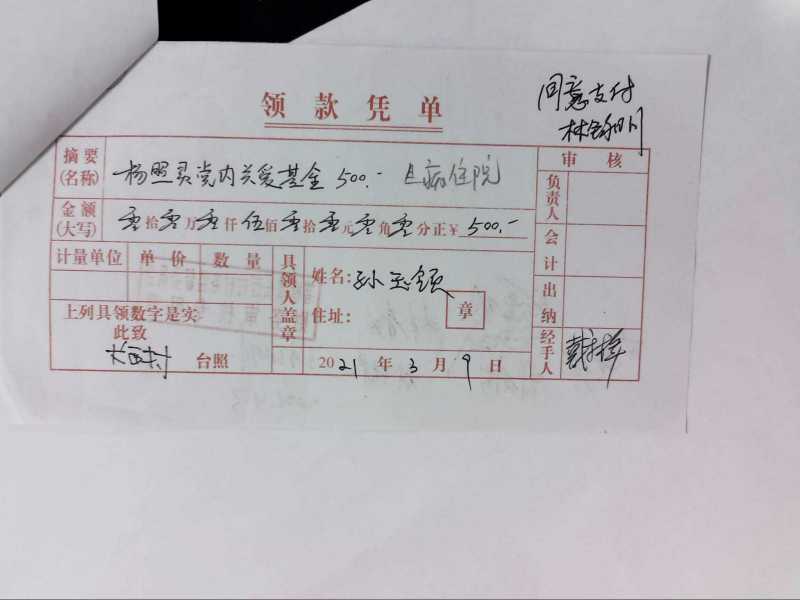 领款凭单
同意支付
摘要(名称) 杨照灵党内关爱基金 500.- 因病住院
审核
金额(大写) 零拾零万零仟伍佰零拾零元零角零分正¥ 500.-
负责人
会计
出纳
经手人
计量单位 单价 数量
具领人盖章
姓名: 孙玉领
住址:
章
上列具领数字是实
此致
大西村 台照
2021年3月9日